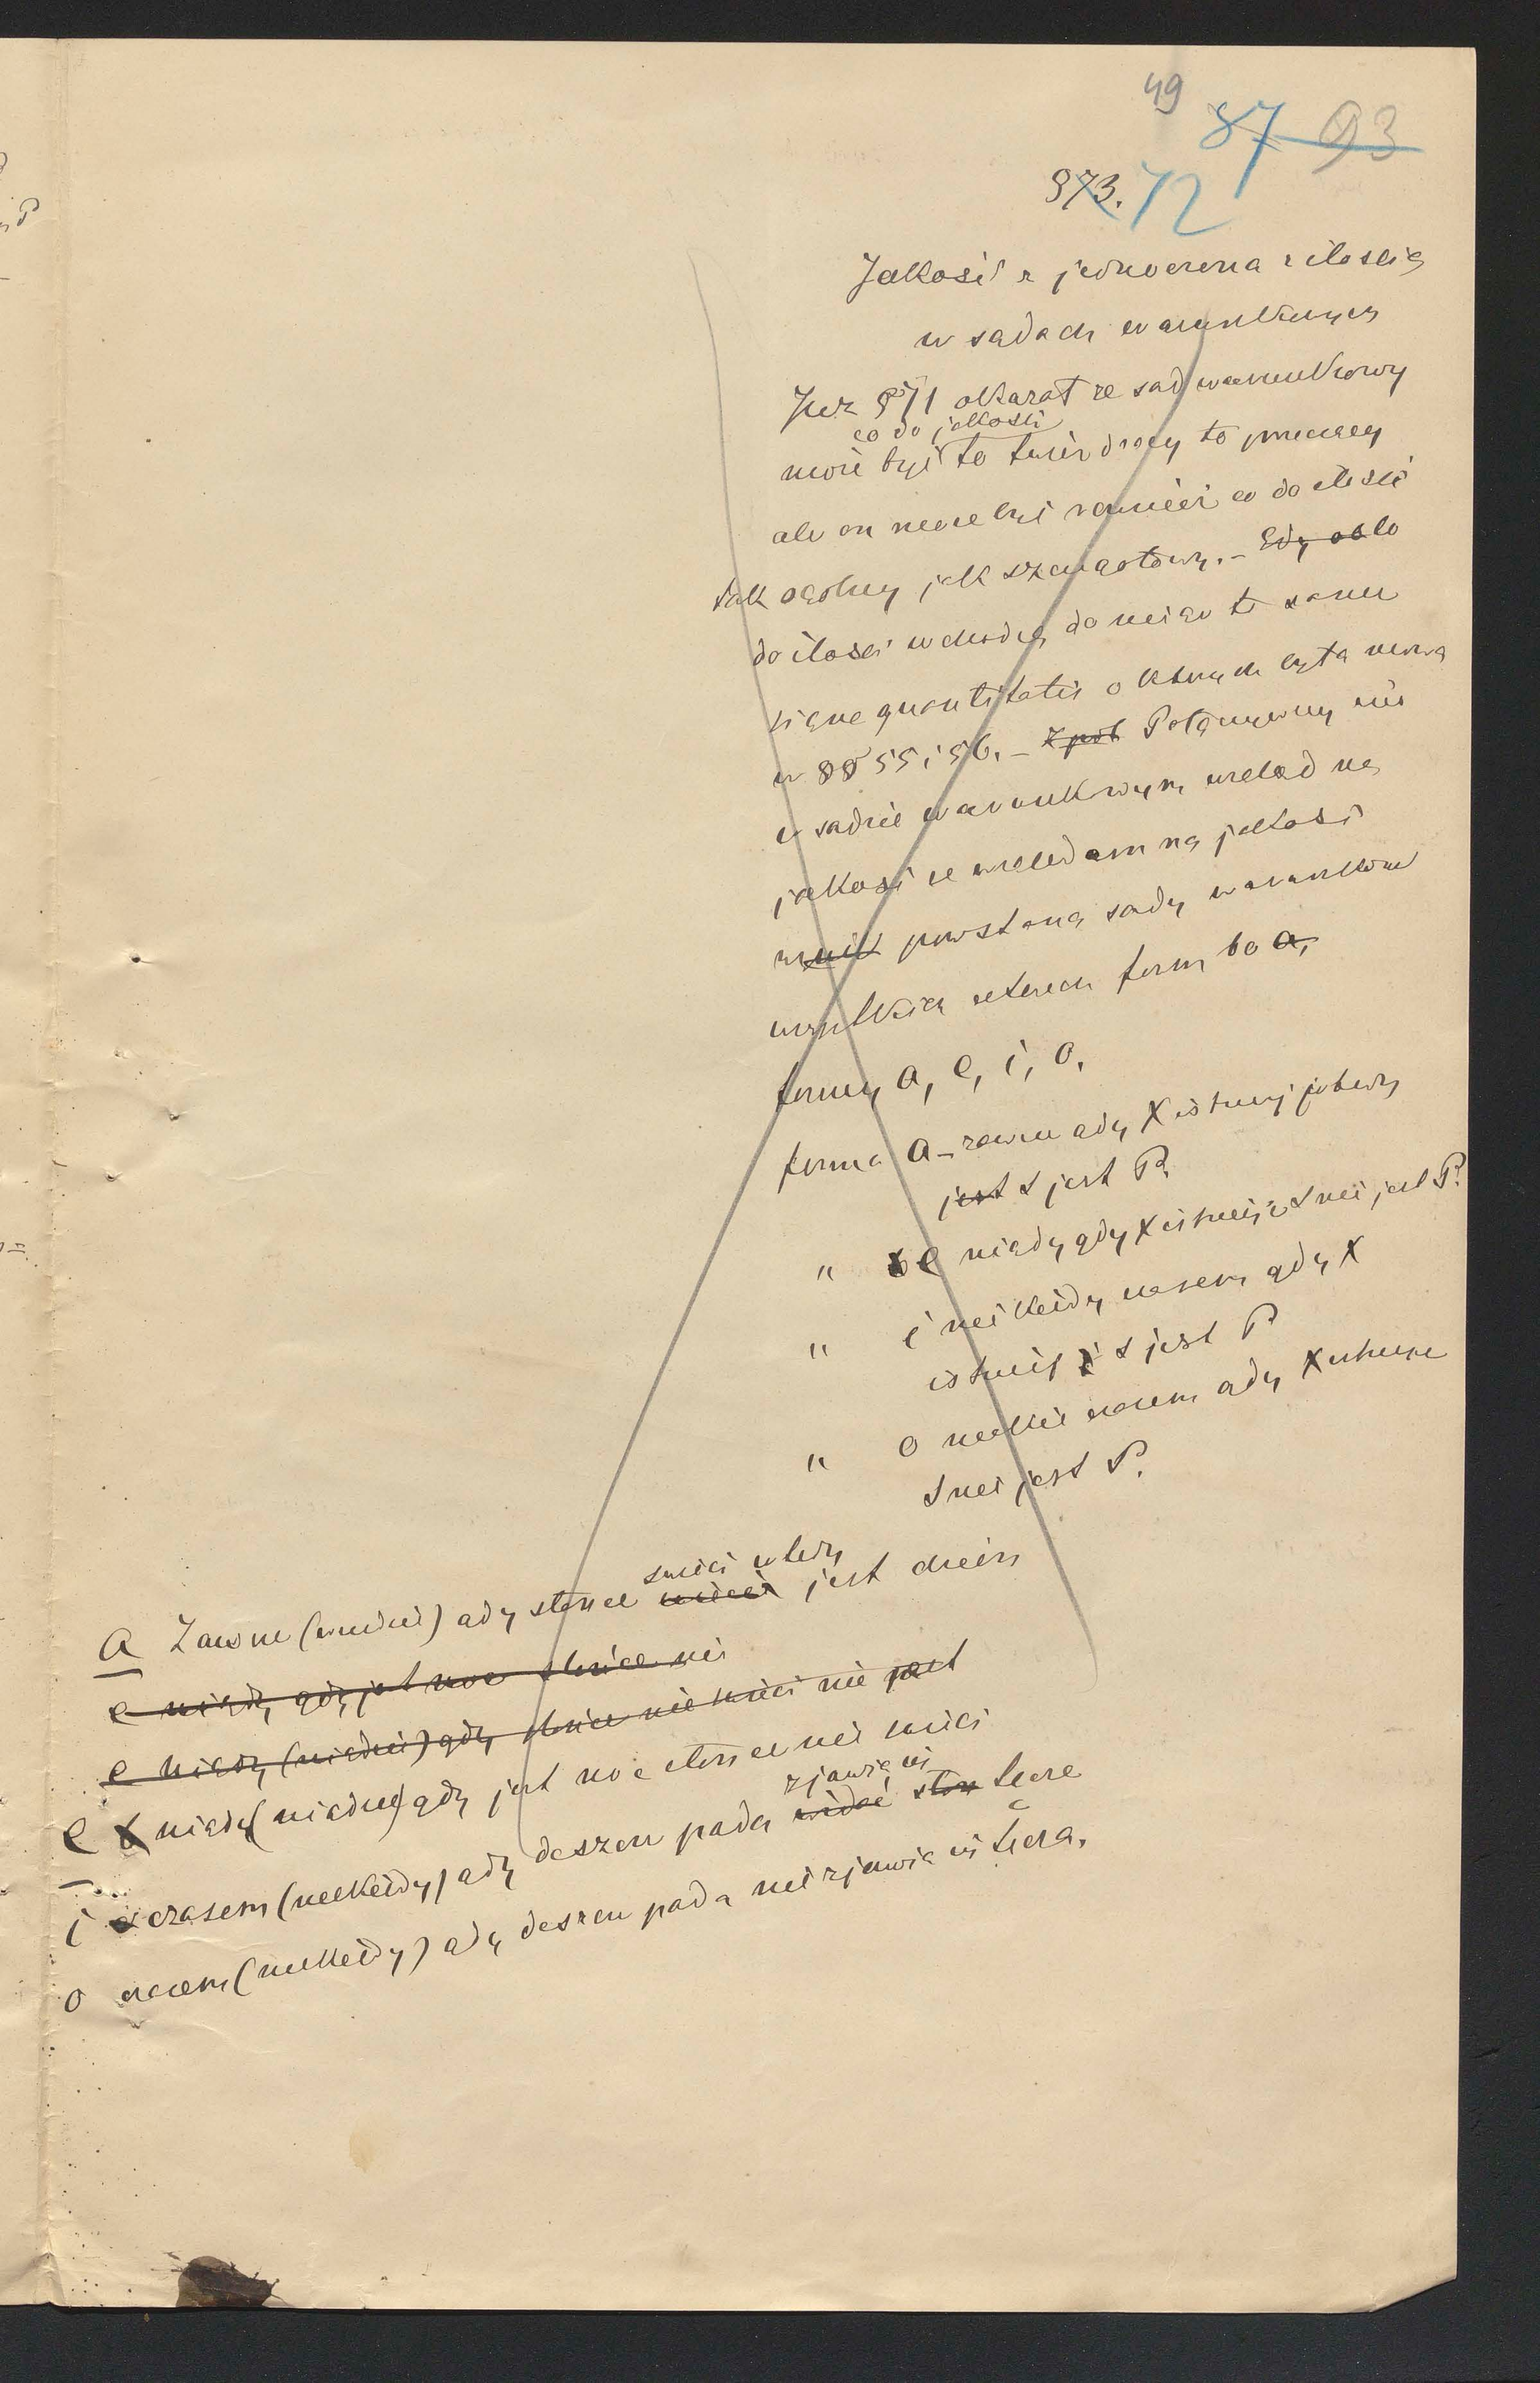 49
87 93
§73. 72
Jakość zjednoczona z ilością
w sądach warunkowych
Już § 71 okazał że sąd warunkowy
co do jakości
może być to twierdzący to przeczący
ale on może być również co do ilości
tak ogólny jak szczegółowy. – Gdy co do
do ilości wchodzą do niego te same
signa quantitatis o których była mowa
w §§ 55 i 56. – Z poł Połączywszy więc
w sądzie warunkowym wzgląd na
jakość ze względem na
powstaną sądy warunkowe
wszystkich czterech form bo a,
formy a, e, i, o.
forma a – zawsze gdy X istnieje wtedy
jest S jest P.
" e nigdy gdy X istnieje S nie jest P.
" i niekiedy czasem gdy X
istnieje S jest P
" o niekiedy czasem gdy X istnieje
S nie jest P.
świeci wtedy
a Zawsze (wszędzie) gdy słońce świeci jest dzień
e nigdy gdy jest noc słońce nie
e nigdy (nigdzie) gdy słońce nie świeci nie jest
e nigdy (nigdzie) gdy jest noc słońce nie świeci
zjawia się
i czasem (niekiedy) gdy deszcz pada widać słoń tęcze
o czasem (niekiedy) gdy deszcz pada nie zjawia się tęcza.